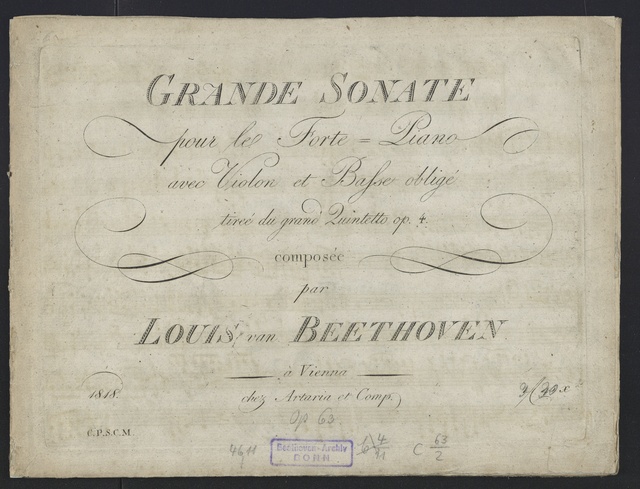 GRANDE SONATE
pour le Forte = Piano
avec Violon et Basse obligé
tireé du grand Quintetto op. 4.
composée
par
LOUIS van BEETHOVEN
à Vienna
chez Artaria et Comp.
1818.
Op 63
C.P.S.C.M.
4611
Beethoven-Archiv
BONN
4
11
C 63
2